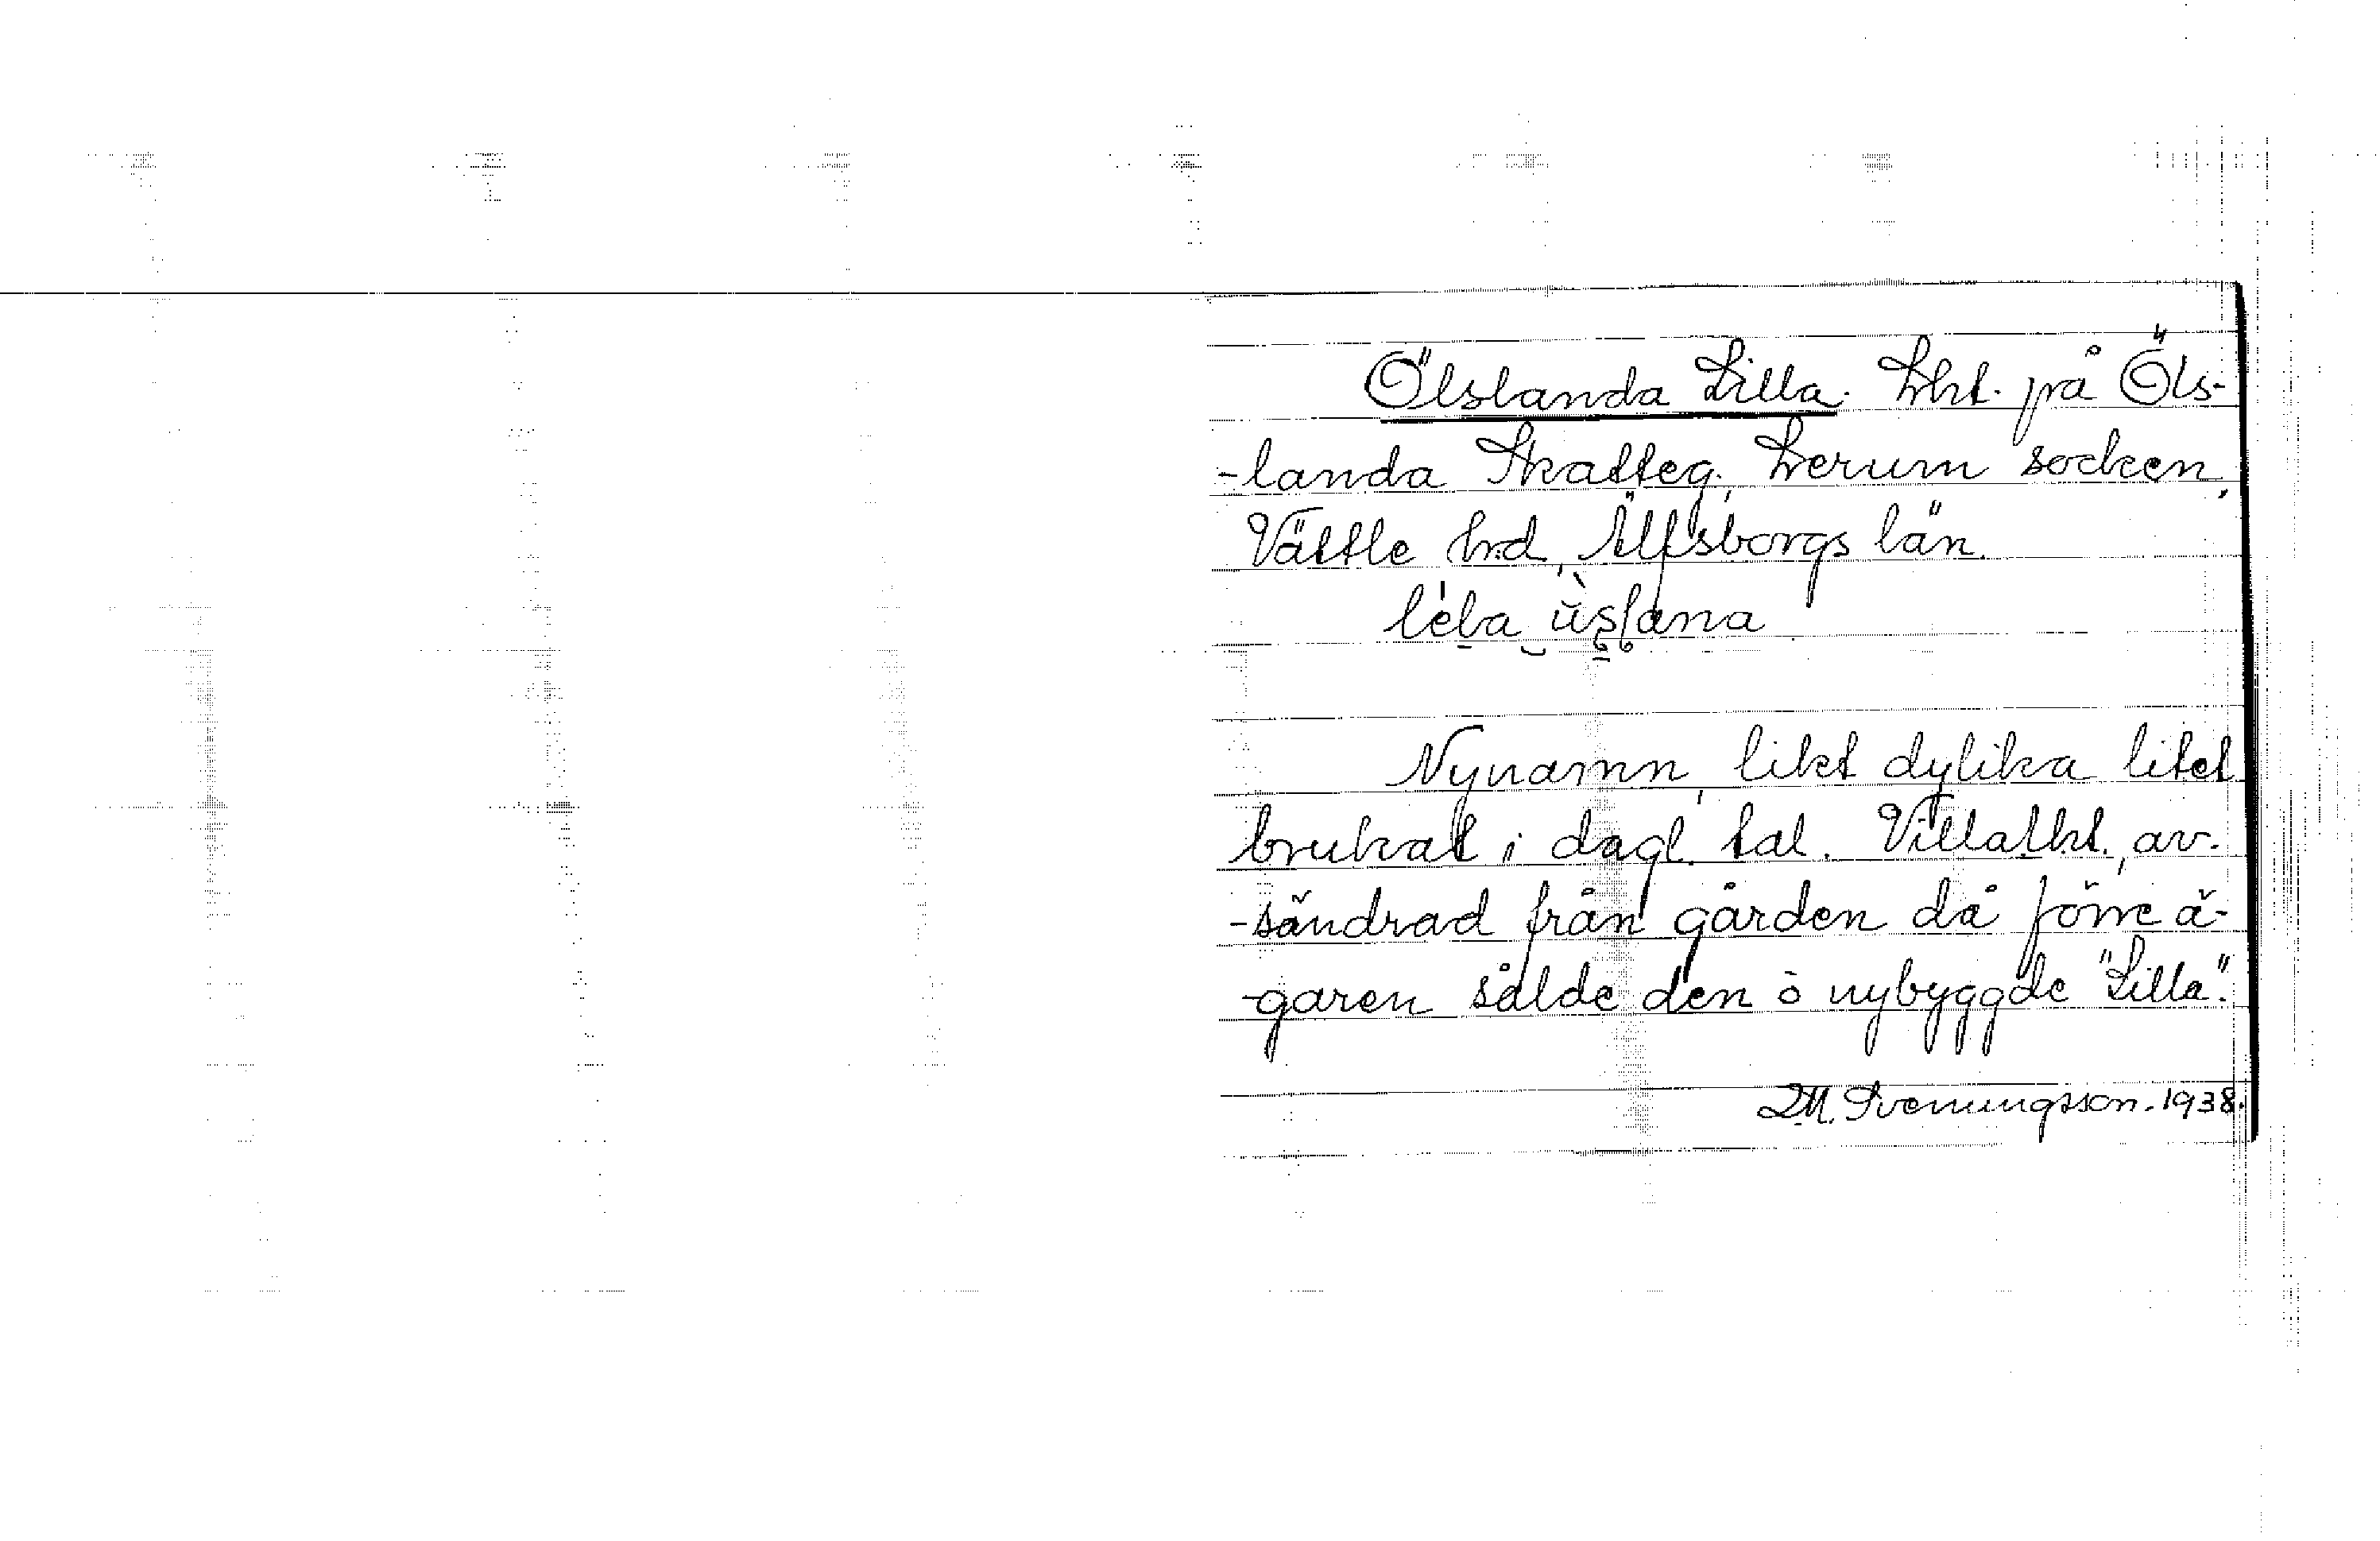 Ölslanda Lilla. Lht. på Öls-
-landa Skatteg., Lerum socken,
Vättle hrd, Älfsborgs län.
Nynamn, likt dylika litet
brukat i dagl. tal. Villalht., av-
-söndrad från gården då förre ä-
-garen sålde den o nybyggde "Lilla".
Svenungsson. 1938.